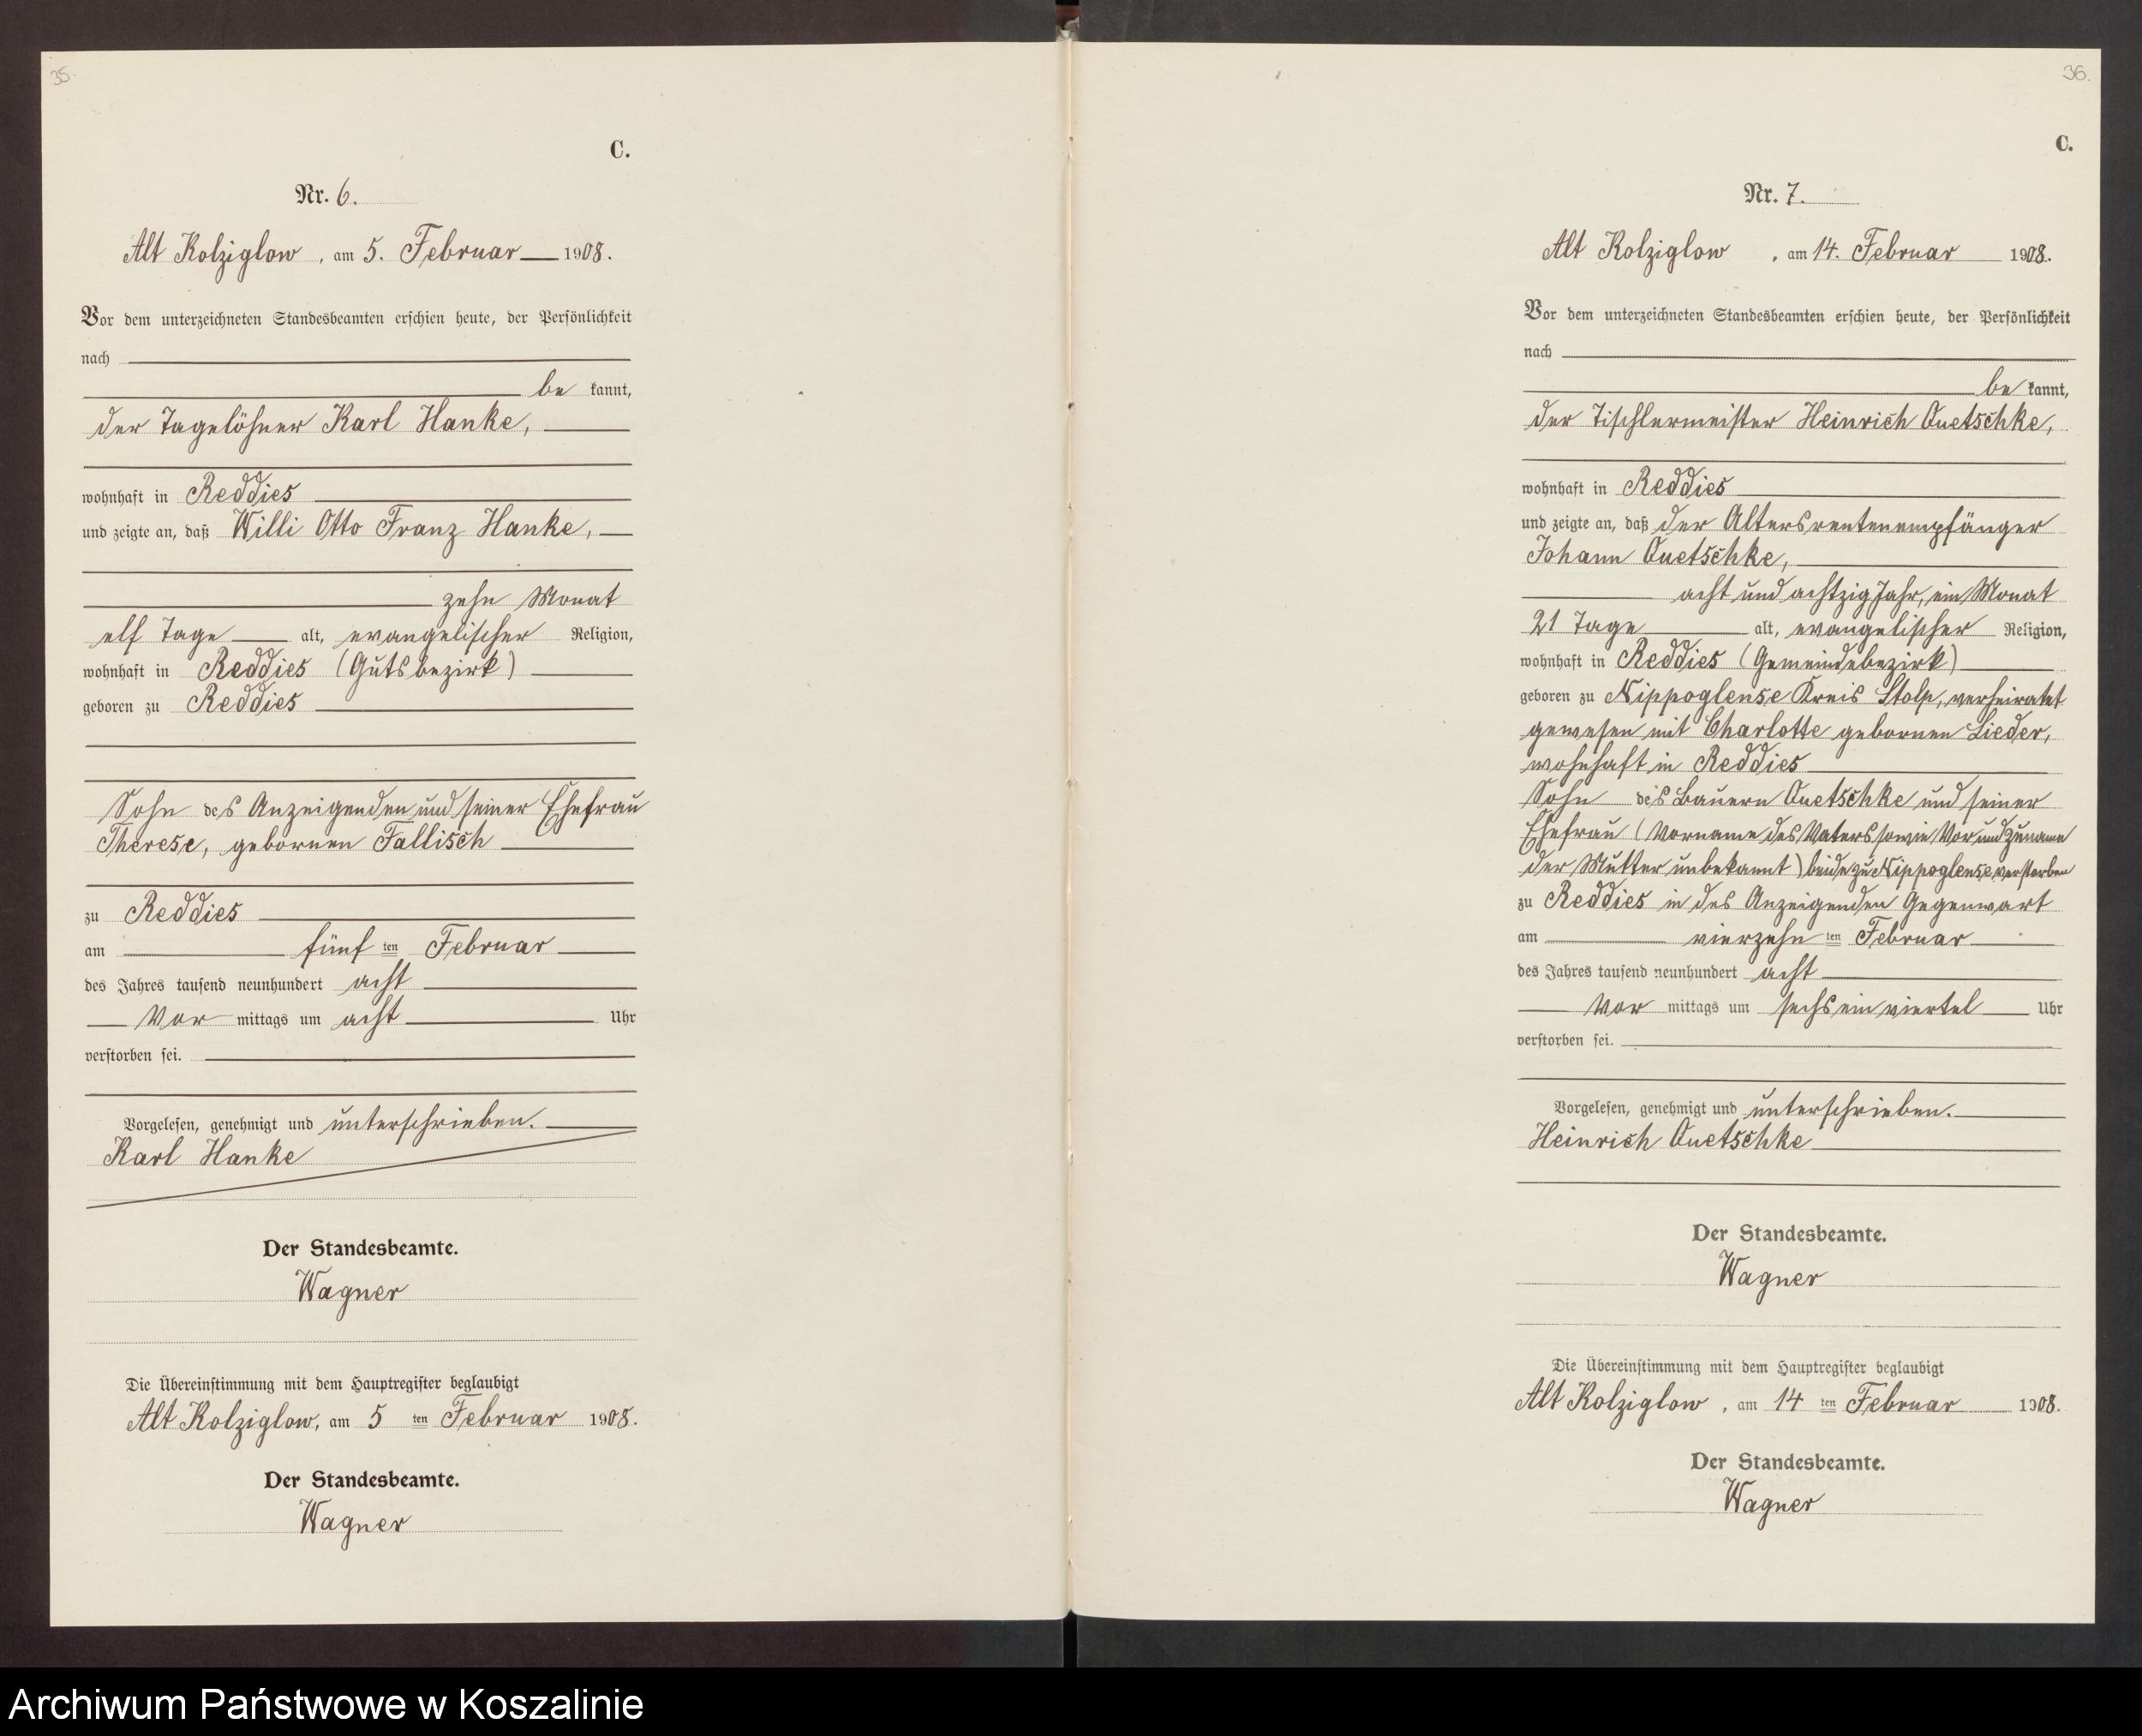 35.
C.
Nr. 6.
Alt Kolziglow, am 5. Februar 1908.
Vor dem unterzeichneten Standesbeamten erschien heute, der Persönlichkeit
nach
be kannt,
der Tagelöhner Karl Hanke,
wohnhaft in Reddies
und zeigte an, daß Willi Otto Franz Hanke,
zehn Monat
elf Tage alt, evangelischer Religion,
wohnhaft in Reddies (Gutsbezirk)
geboren zu Reddies
Sohn des Anzeigenden und seiner Ehefrau
Therese, gebornen Fallisch
zu Reddies
am fünf ten Februar
des Jahres tausend neunhundert acht
Vor mittags um acht Uhr
verstorben sei.
Vorgelesen, genehmigt und unterschrieben.
Karl Hanke
Der Standesbeamte.
Wagner
Die Übereinstimmung mit dem Hauptregister beglaubigt
Alt Kolziglow, am 5 ten Februar 1908.
Der Standesbeamte.
Wagner
36.
C.
Nr. 7.
Alt Kolziglow, am 14. Februar 1908.
Vor dem unterzeichneten Standesbeamten erschien heute, der Persönlichkeit
nach
be kannt,
der Tischlermeister Heinrich Quetschke,
wohnhaft in Reddies
und zeigte an, daß der Altersrentenempfänger
Johann Quetschke,
acht und achtzig Jahr, ein Monat
21 Tage alt, evangelischer Religion,
wohnhaft in Reddies (Gemeindebezirk)
geboren zu Nippoglense Kreis Stolp, verheiratet
gewesen mit Charlotte gebornen Lieder,
wohnhaft in Reddies
Sohn des Bauern Quetschke und seiner
Ehefrau (Vorname des Vaters sowie Vor und Zuname
der Mutter unbekannt) beide zu Nippoglense verstorben
zu Reddies in des Anzeigenden Gegenwart
am vierzehn ten Februar
des Jahres tausend neunhundert acht
Vor mittags um sechs ein viertel Uhr
verstorben sei.
Vorgelesen, genehmigt und unterschrieben.
Heinrich Quetschke
Der Standesbeamte.
Wagner
Die Übereinstimmung mit dem Hauptregister beglaubigt
Alt Kolziglow, am 14 ten Februar 1908.
Der Standesbeamte.
Wagner
Archiwum Państwowe w Koszalinie